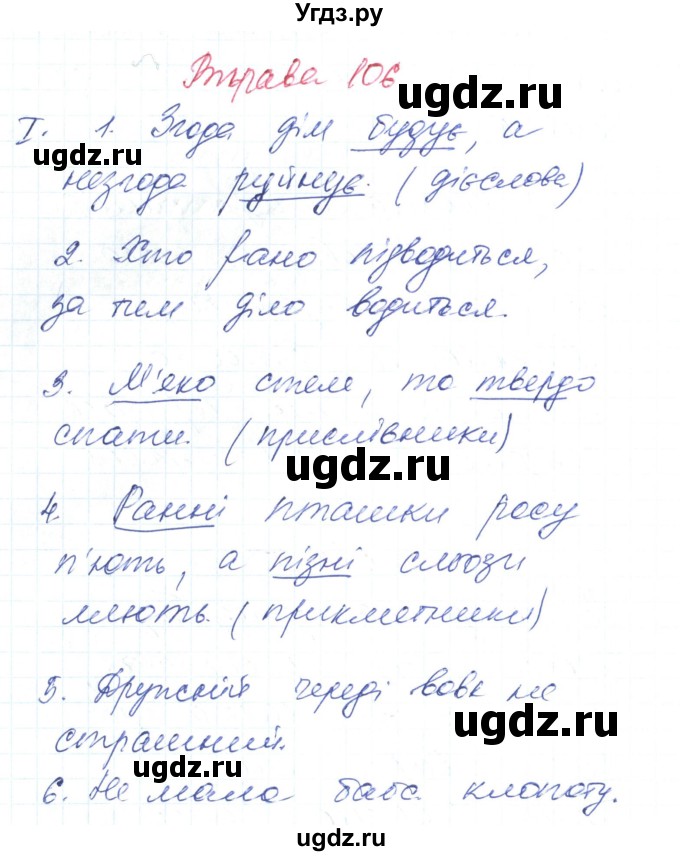 Угдз.ру
Вправа 106
ugdz.ru
I. 1. Згода дім будує, а
ugdz.ru
незгода руйнує. (дієслова)
ugdz.ru
2. Хто рано підводиться,
за тим діло водиться.
ugdz.ru
3. М'яко стеле, то твердо
спати. (прислівники)
ugdz.ru
4. Ранні пташки росу
п'ють, а пізні сльози
ugdz.ru
ллють. (прикметники)
5. Дружній череді вовк не
ugdz.ru
страшний.
ugdz.ru
6. Не мала баба клопоту.
ugdz.ru